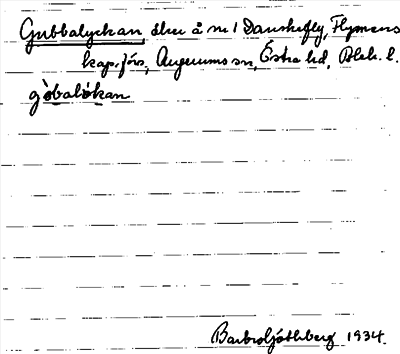 Gubbalyckan, åker å nr 1 Danskefly, Flymens
kap.förs, Augerums sn, Östra hd, Blek. l.
gòbalỏkan
Barbro Söthberg 1934